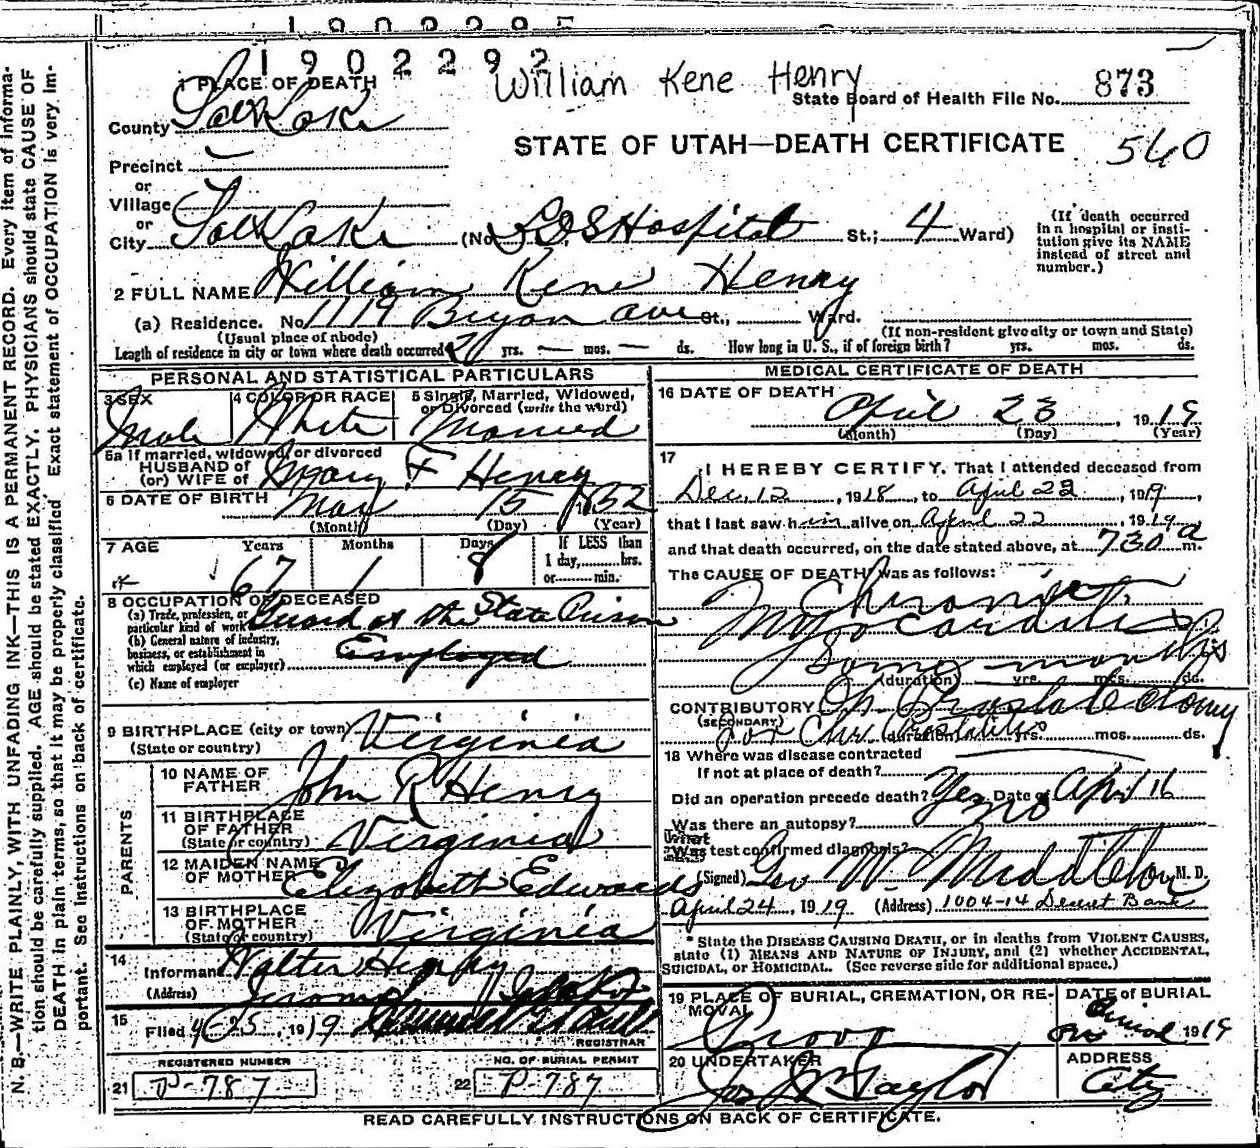 1902292
William Kene Henry
State Board of Health File No. 873
1 PLACE OF DEATH
County Salt Lake
STATE OF UTAH—DEATH CERTIFICATE 560
Precinct
or
Village
or
City Salt Lake (No. LDS Hospital St.; 4 Ward)
(If death occurred in a hospital or institution give its NAME instead of street and number.)
2 FULL NAME William Kene Henry
(a) Residence. No. 1119 Bryan Ave St., Ward.
(Usual place of abode) (If non-resident give city or town and State)
Length of residence in city or town where death occurred yrs. — mos. — ds. How long in U. S., if of foreign birth? yrs. mos. ds.
PERSONAL AND STATISTICAL PARTICULARS
3 SEX 4 COLOR OR RACE 5 Single, Married, Widowed, or Divorced (write the word)
Male White Married
5a If married, widowed, or divorced
HUSBAND of
(or) WIFE of Mary F Henry
6 DATE OF BIRTH May 15 1852
(Month) (Day) (Year)
7 AGE Years Months Days If LESS than
1 day, hrs.
or min.
67 1 8
8 OCCUPATION OF DECEASED
(a) Trade, profession, or particular kind of work Guard at the State Prison
(b) General nature of industry, business, or establishment in which employed (or employer) Employed
(c) Name of employer
9 BIRTHPLACE (city or town) Virginia
(State or country)
PARENTS
10 NAME OF FATHER John R Henry
11 BIRTHPLACE OF FATHER Virginia
(State or country)
12 MAIDEN NAME OF MOTHER Elizabeth Edwards
13 BIRTHPLACE OF MOTHER Virginia
(State or country)
14
Informant Walter Henry
(Address) Jerome Idaho
15
Filed 4-25, 1919
REGISTRAR
REGISTERED NUMBER NO. OF BURIAL PERMIT
21 P-787 22 P-787
MEDICAL CERTIFICATE OF DEATH
16 DATE OF DEATH
April 23, 1919
(Month) (Day) (Year)
17
I HEREBY CERTIFY, That I attended deceased from
Dec. 12, 1918, to April 23, 1919,
that I last saw him alive on April 22, 1919
and that death occurred, on the date stated above, at 730 a m.
The CAUSE OF DEATH was as follows:
Chronic
Myocarditis
Some months
(duration) yrs. mos. ds.
CONTRIBUTORY Op. Prostatectomy
(SECONDARY) for Chr Prostatitis
(duration) yrs. mos. ds.
18 Where was disease contracted
If not at place of death?
Did an operation precede death? Yes Date of April 16
Was there an autopsy? no
What test confirmed diagnosis?
(Signed) Geo W. Middleton M. D.
April 24, 1919 (Address) 1004-14 Deseret Bank
* State the DISEASE CAUSING DEATH, or in deaths from VIOLENT CAUSES, state (1) MEANS AND NATURE OF INJURY, and (2) whether ACCIDENTAL, SUICIDAL, or HOMICIDAL. (See reverse side for additional space.)
19 PLACE OF BURIAL, CREMATION, OR REMOVAL DATE of BURIAL
Provo 1919
20 UNDERTAKER ADDRESS
Jos Wm Taylor City
READ CAREFULLY INSTRUCTIONS ON BACK OF CERTIFICATE.
N. B.—WRITE PLAINLY, WITH UNFADING INK—THIS IS A PERMANENT RECORD. Every item of information should be carefully supplied. AGE should be stated EXACTLY. PHYSICIANS should state CAUSE OF DEATH in plain terms, so that it may be properly classified. Exact statement of OCCUPATION is very important. See instructions on back of certificate.